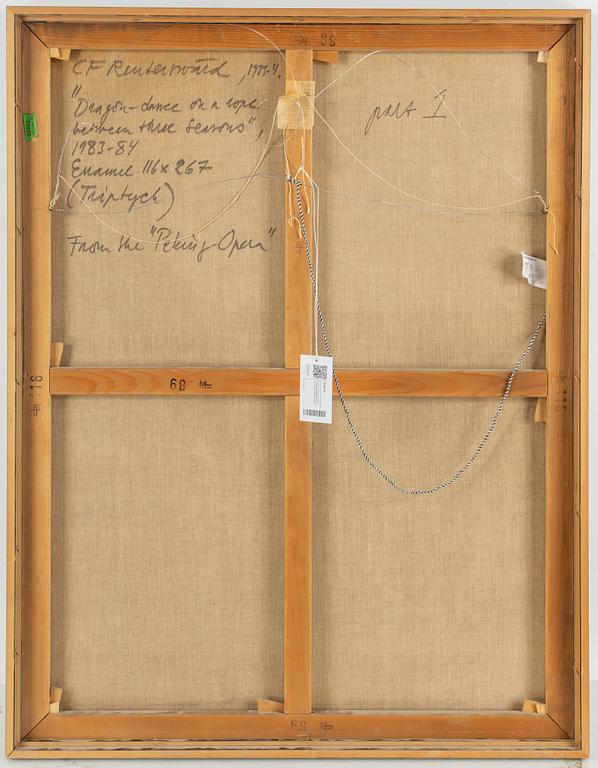 CF Reuterswärd, 1983-4.
"Dragon-dance on a rope
between three seasons",
1983-84
Enamel 116 x 267
(Triptych)
From the "Peking-Opera"
part 1
89
116
89
116
89